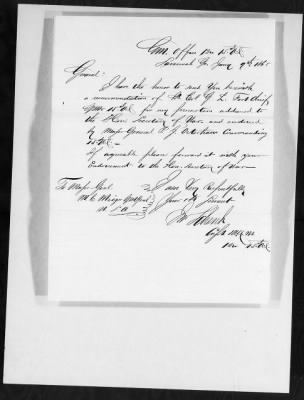 Qm. Office 15" A.C.
Savannah Ga Jany 9th 1865
General:
I have the honor to send You herewith
a recommendation of Lt. Col G. L. Fort Chief
Qmr 15 A.C. for my promotion addressed to
the Hon. Secretary of War and endorsed
by Major General P. J. Osterhaus Commanding
15" A.C.
If agreeable please forward it with your
Endorsement to the Hon. Secretary of War
I am Very Respectfully
Your Obt Servant
To Major Genl.
M. C. Meigs
U S A
Capt
15" A.C.